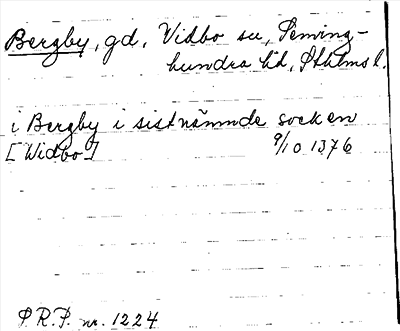 Bergby, gd, Vidbo sn, Seming-
hundra hd, Sthlms l.
i Bergby i sistnämnde socken
[Widbo] 9/10 1376
S.R.P. nr. 1224